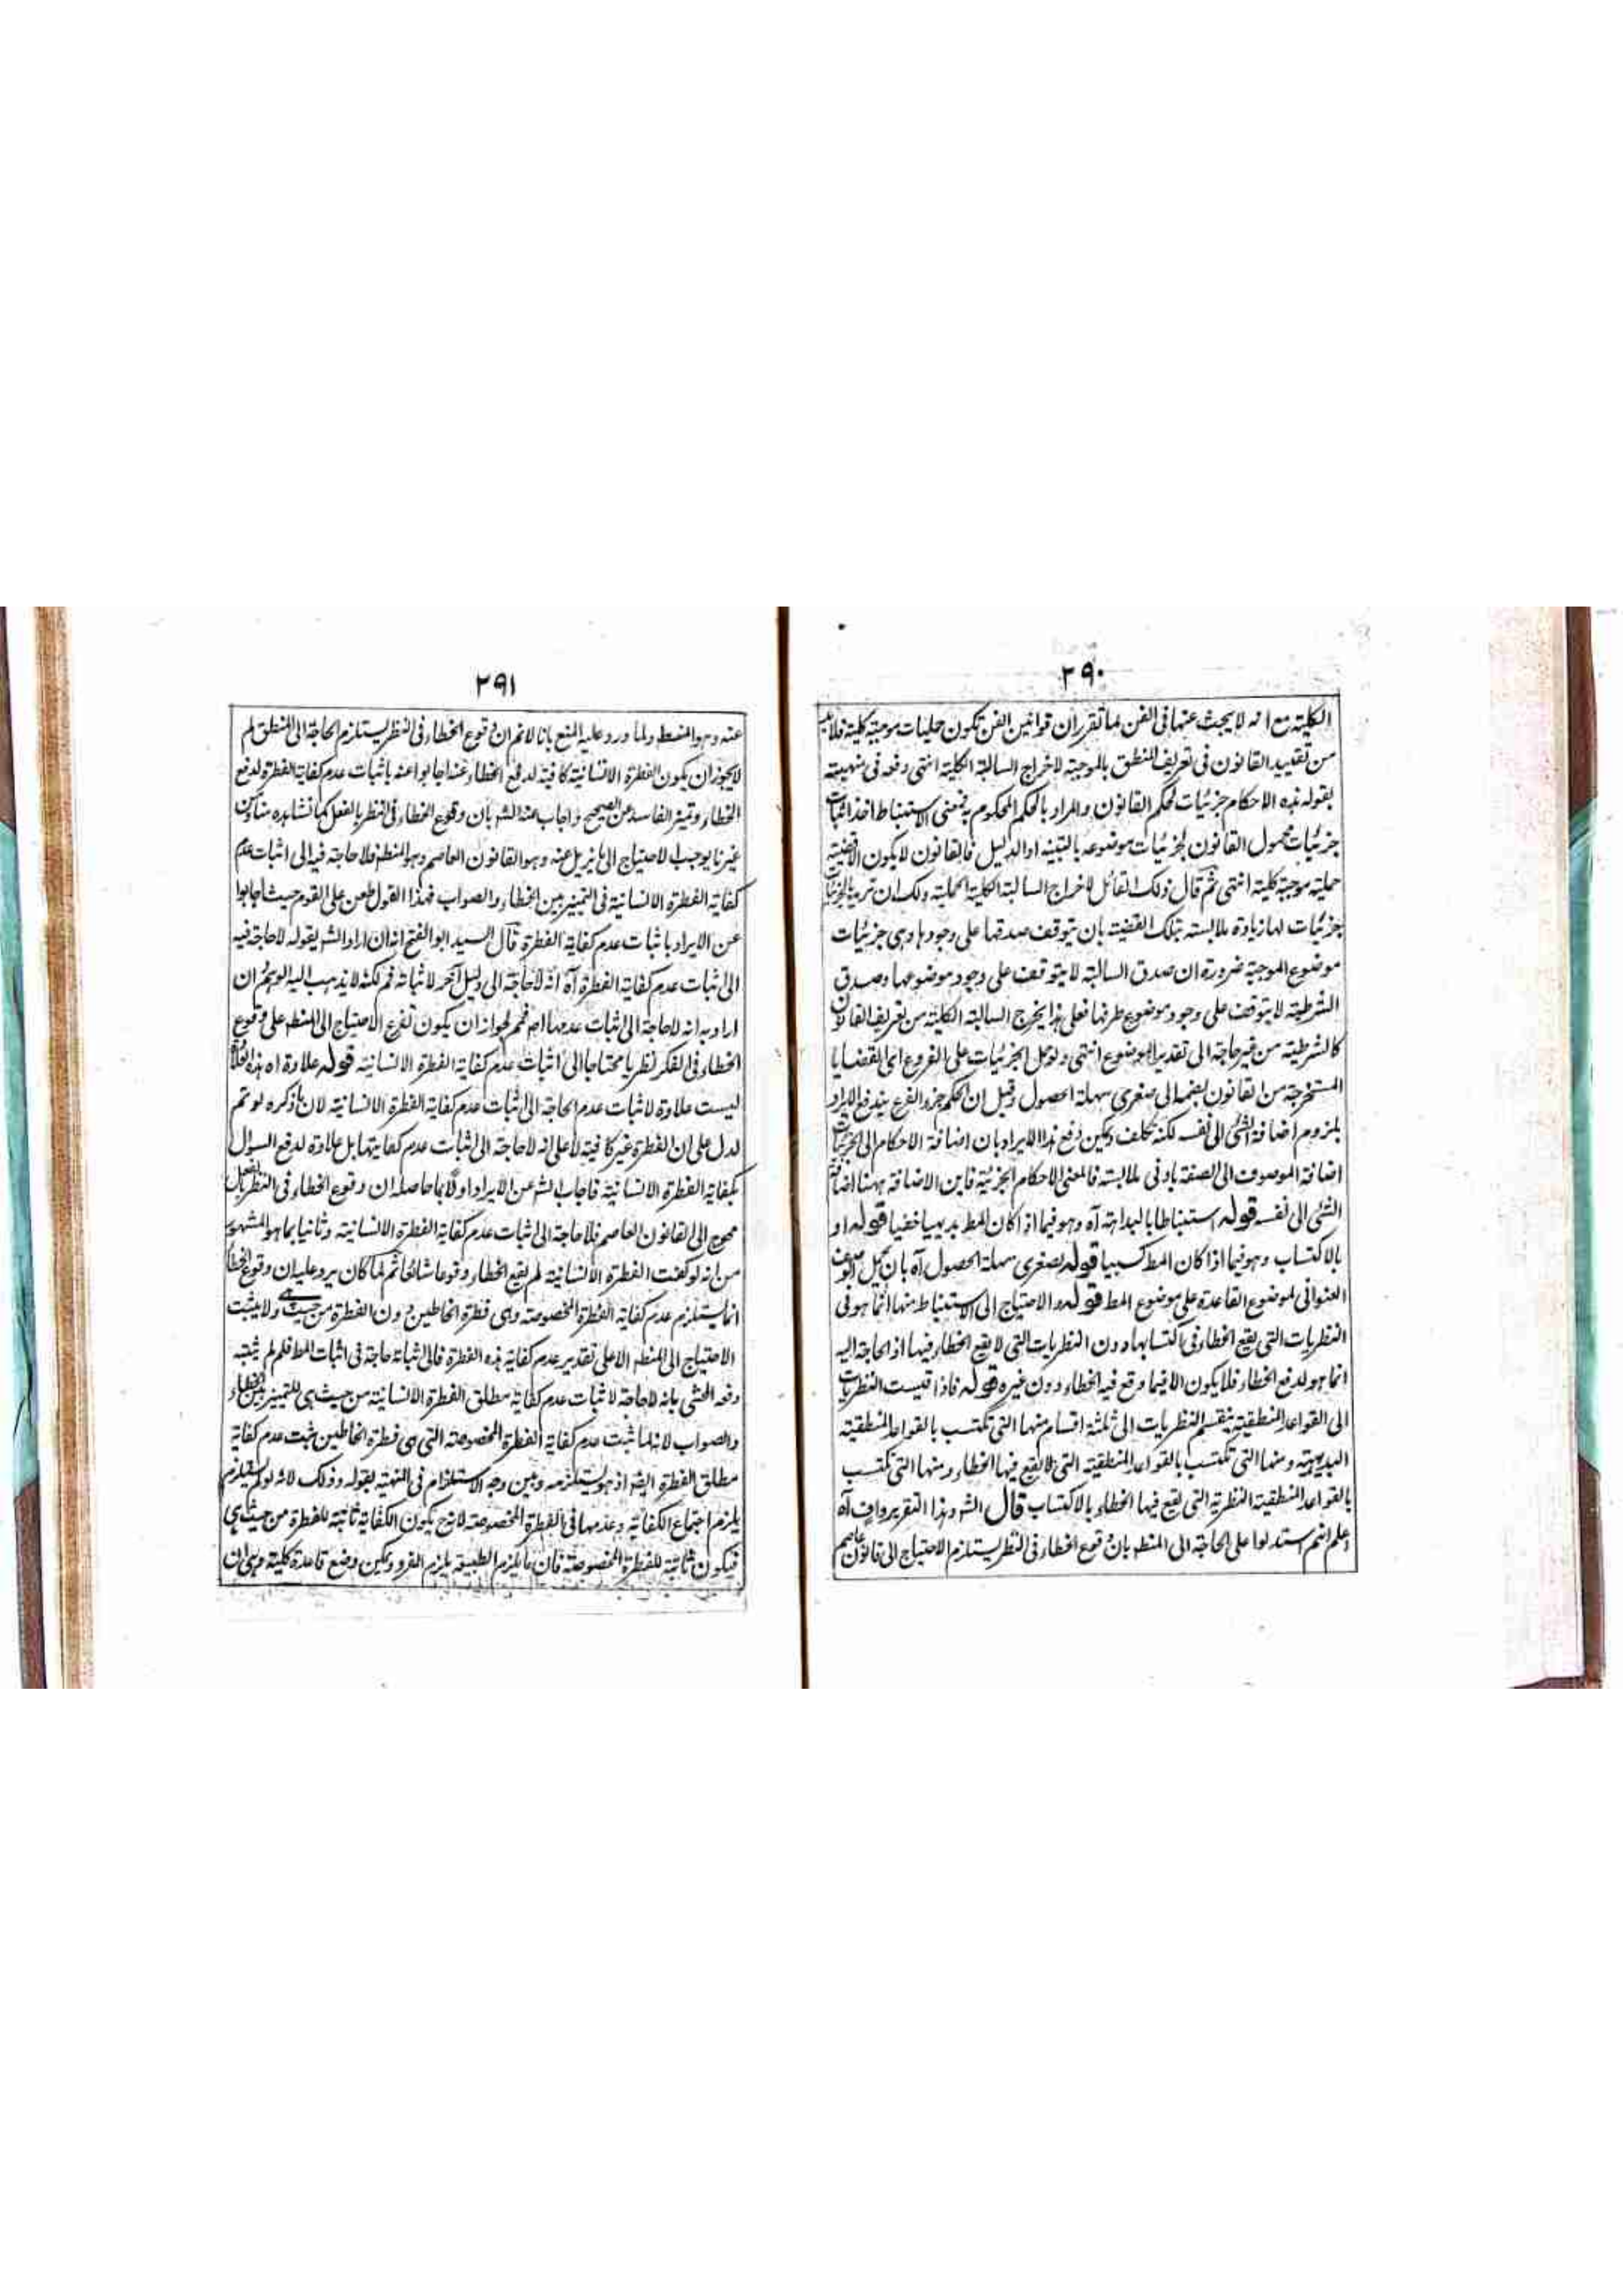 ٢٩٠
الكلية مع انه لا يبحث عنها فى الفن لما تقرر ان قوانين الفن تكون حمليات موجبة كلية فلابد
من تقييد القانون فى تعريف المنطق بالموجبة لاخراج السالبة الكلية انتهى دفعه فى منهيته
بقوله هذه الاحكام جزئيات لحكم القانون والمراد بالحكم المحكوم به فمعنى الاستنباط اخذ اثبات
جزئيات محمول القانون لجزئيات موضوعه بالتنبيه او الدليل فالقانون لا يكون الا قضية
حملية موجبة كلية انتهى ثم قال ذلك القائل لاخراج السالبة الكلية الحملية ولك ان تريد بالجزئيات
جزئيات لها زيادة ملابسة بتلك القضية بان يتوقف صدقها على وجودها وهى جزئيات
موضوع الموجبة ضرورة ان صدق السالبة لا يتوقف على وجود موضوعها وصدق
الشرطية لا يتوقف على وجود موضوع طرفها فعلى هذا يخرج السالبة الكلية من تعريف القانون
كالشرطية من غير حاجة الى تقدير الموضوع انتهى ولو حمل الجزئيات على الفروع اعنى القضايا
المستخرجة من القانون بضمها الى صغرى سهلة الحصول وقيل ان الحكم جزء الفرع يندفع الايراد
بلزوم اضافة الشئ الى نفسه لكنه تكلف ويمكن دفع هذا الايراد بان اضافة الاحكام الى الجزئيات
اضافة الموصوف الى الصفة بادنى ملابسة فالمعنى الاحكام الجزئية فاين الاضافة ههنا اضافة
الشئ الى نفسه قوله استنباطا بالبداهة آه وهو فيما اذا كان المط بديهيا خفيا قوله او
بالاكتساب وهو فيما اذا كان المط كسبيا قوله لصغرى سهلة الحصول آه بان يحمل الوصف
العنوانى لموضوع القاعدة على موضوع المط قوله والاحتياج الى الاستنباط منها انما هو فى
النظريات التى يقع الخطاء فى اكتسابها دون النظريات التى لا يقع الخطاء فيها اذ الحاجة اليه
انما هو لدفع الخطاء فلا يكون الا فيما وقع فيه الخطاء دون غيره قوله فاذا قيست النظريات
الى القواعد المنطقية ينقسم النظريات الى ثلثة اقسام منها التى تكتسب بالقواعد المنطقية
البديهية ومنها التى تكتسب بالقواعد المنطقية التى لا يقع فيها الخطاء ومنها التى تكتسب
بالقواعد المنطقية النظرية التى يقع فيها الخطاء بالاكتساب قال الشه وهذا التقرير واف آه
اعلم انهم استدلوا على الحاجة الى المنطه بان وقوع الخطاء فى النظر يستلزم الاحتياج الى قانون عاصم
٢٩١
عنه وهو المنطه ولما ورد عليه المنع بانا لا نم ان وقوع الخطاء فى النظر يستلزم الحاجة الى المنطق لم
لا يجوز ان يكون الفطرة الانسانية كافية لدفع الخطاء عنه اجابوا عنه باثبات عدم كفاية الفطرة لدفع
الخطاء وتميز الفاسد عن الصحيح واجاب عنه الشه بان وقوع الخطاء فى النظر بالفعل كما نشاهده منا ومن
غيرنا يوجب الاحتياج الى ما يزيل عنه وهو القانون العاصم وهو المنطه فلا حاجة فيه الى اثبات عدم
كفاية الفطرة الانسانية فى التمييز بين الخطاء والصواب فهذا القول طعن على القوم حيث اجابوا
عن الايراد باثبات عدم كفاية الفطرة قال السيد ابو الفتح انه ان اراد الشه بقوله لا حاجة فيه
الى اثبات عدم كفاية الفطرة آه انه لا حاجة الى دليل آخر لاثباته فم لكنه لا يذهب اليه الوهم وان
اراد به انه لا حاجة الى اثبات عدمها اصه فمم لجواز ان يكون تفرع الاحتياج الى المنطه على وقوع
الخطاء فى الفكر نظريا محتاجا الى اثبات عدم كفاية الفطرة الانسانية قوله علاوة اه هذه العلاوة
ليست علاوة لاثبات عدم الحاجة الى اثبات عدم كفاية الفطرة الانسانية لان ما ذكره لو تم
لدل على ان الفطرة غير كافية لا على انه لا حاجة الى اثبات عدم كفايتها بل علاوة لدفع السوال
بكفاية الفطرة الانسانية فاجاب الشه عن الايراد اولا بما حاصله ان وقوع الخطاء فى النظر بالفعل
محوج الى القانون العاصم فلا حاجة الى اثبات عدم كفاية الفطرة الانسانية وثانيا بما هو المشهور
من انه لو كفت الفطرة الانسانية لم يقع الخطاء وقوعا شائعا ثم لما كان يرد عليه ان وقوع الخطاء
انما يستلزم عدم كفاية الفطرة المخصوصة وهى فطرة الخاطئين دون الفطرة من حيث هى ولا يثبت
الاحتياج الى المنطه الا على تقدير عدم كفاية هذه الفطرة فالى اثباته حاجة فى اثبات المط فلم لم يثبته
دفعه المحشى بانه لا حاجة لاثبات عدم كفاية مطلق الفطرة الانسانية من حيث هى للتمييز بين الخطاء
والصواب لانه لما ثبت عدم كفاية الفطرة المخصوصة التى هى فطرة الخاطئين يثبت عدم كفاية
مطلق الفطرة ايضه اذ هو يستلزمه وبين وجه الاستلزام فى المنهية بقوله وذلك لانه لو لم يستلزم
يلزم اجتماع الكفاية وعدمها فى الفطرة المخصوصة لانه ح يكون الكفاية ثابتة للفطرة من حيث هى
فيكون ثابتة للفطرة المخصوصة فان ما يلزم الطبيعة يلزم الفرد ويمكن وضع قاعدة كلية وهى ان